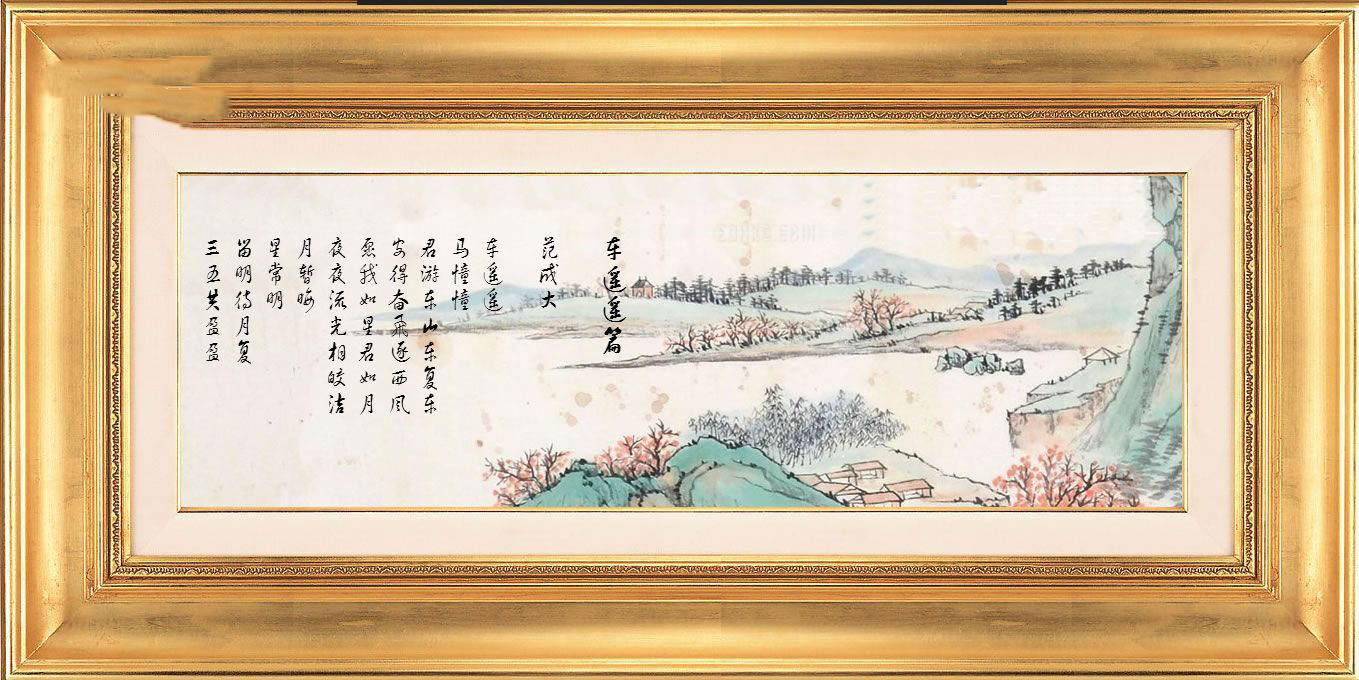 车遥遥篇
范成大
车遥遥
马憧憧
君游东山东复东
安得奋飞逐西风
愿我如星君如月
夜夜流光相皎洁
月暂晦
星常明
留明待月复
三五共盈盈